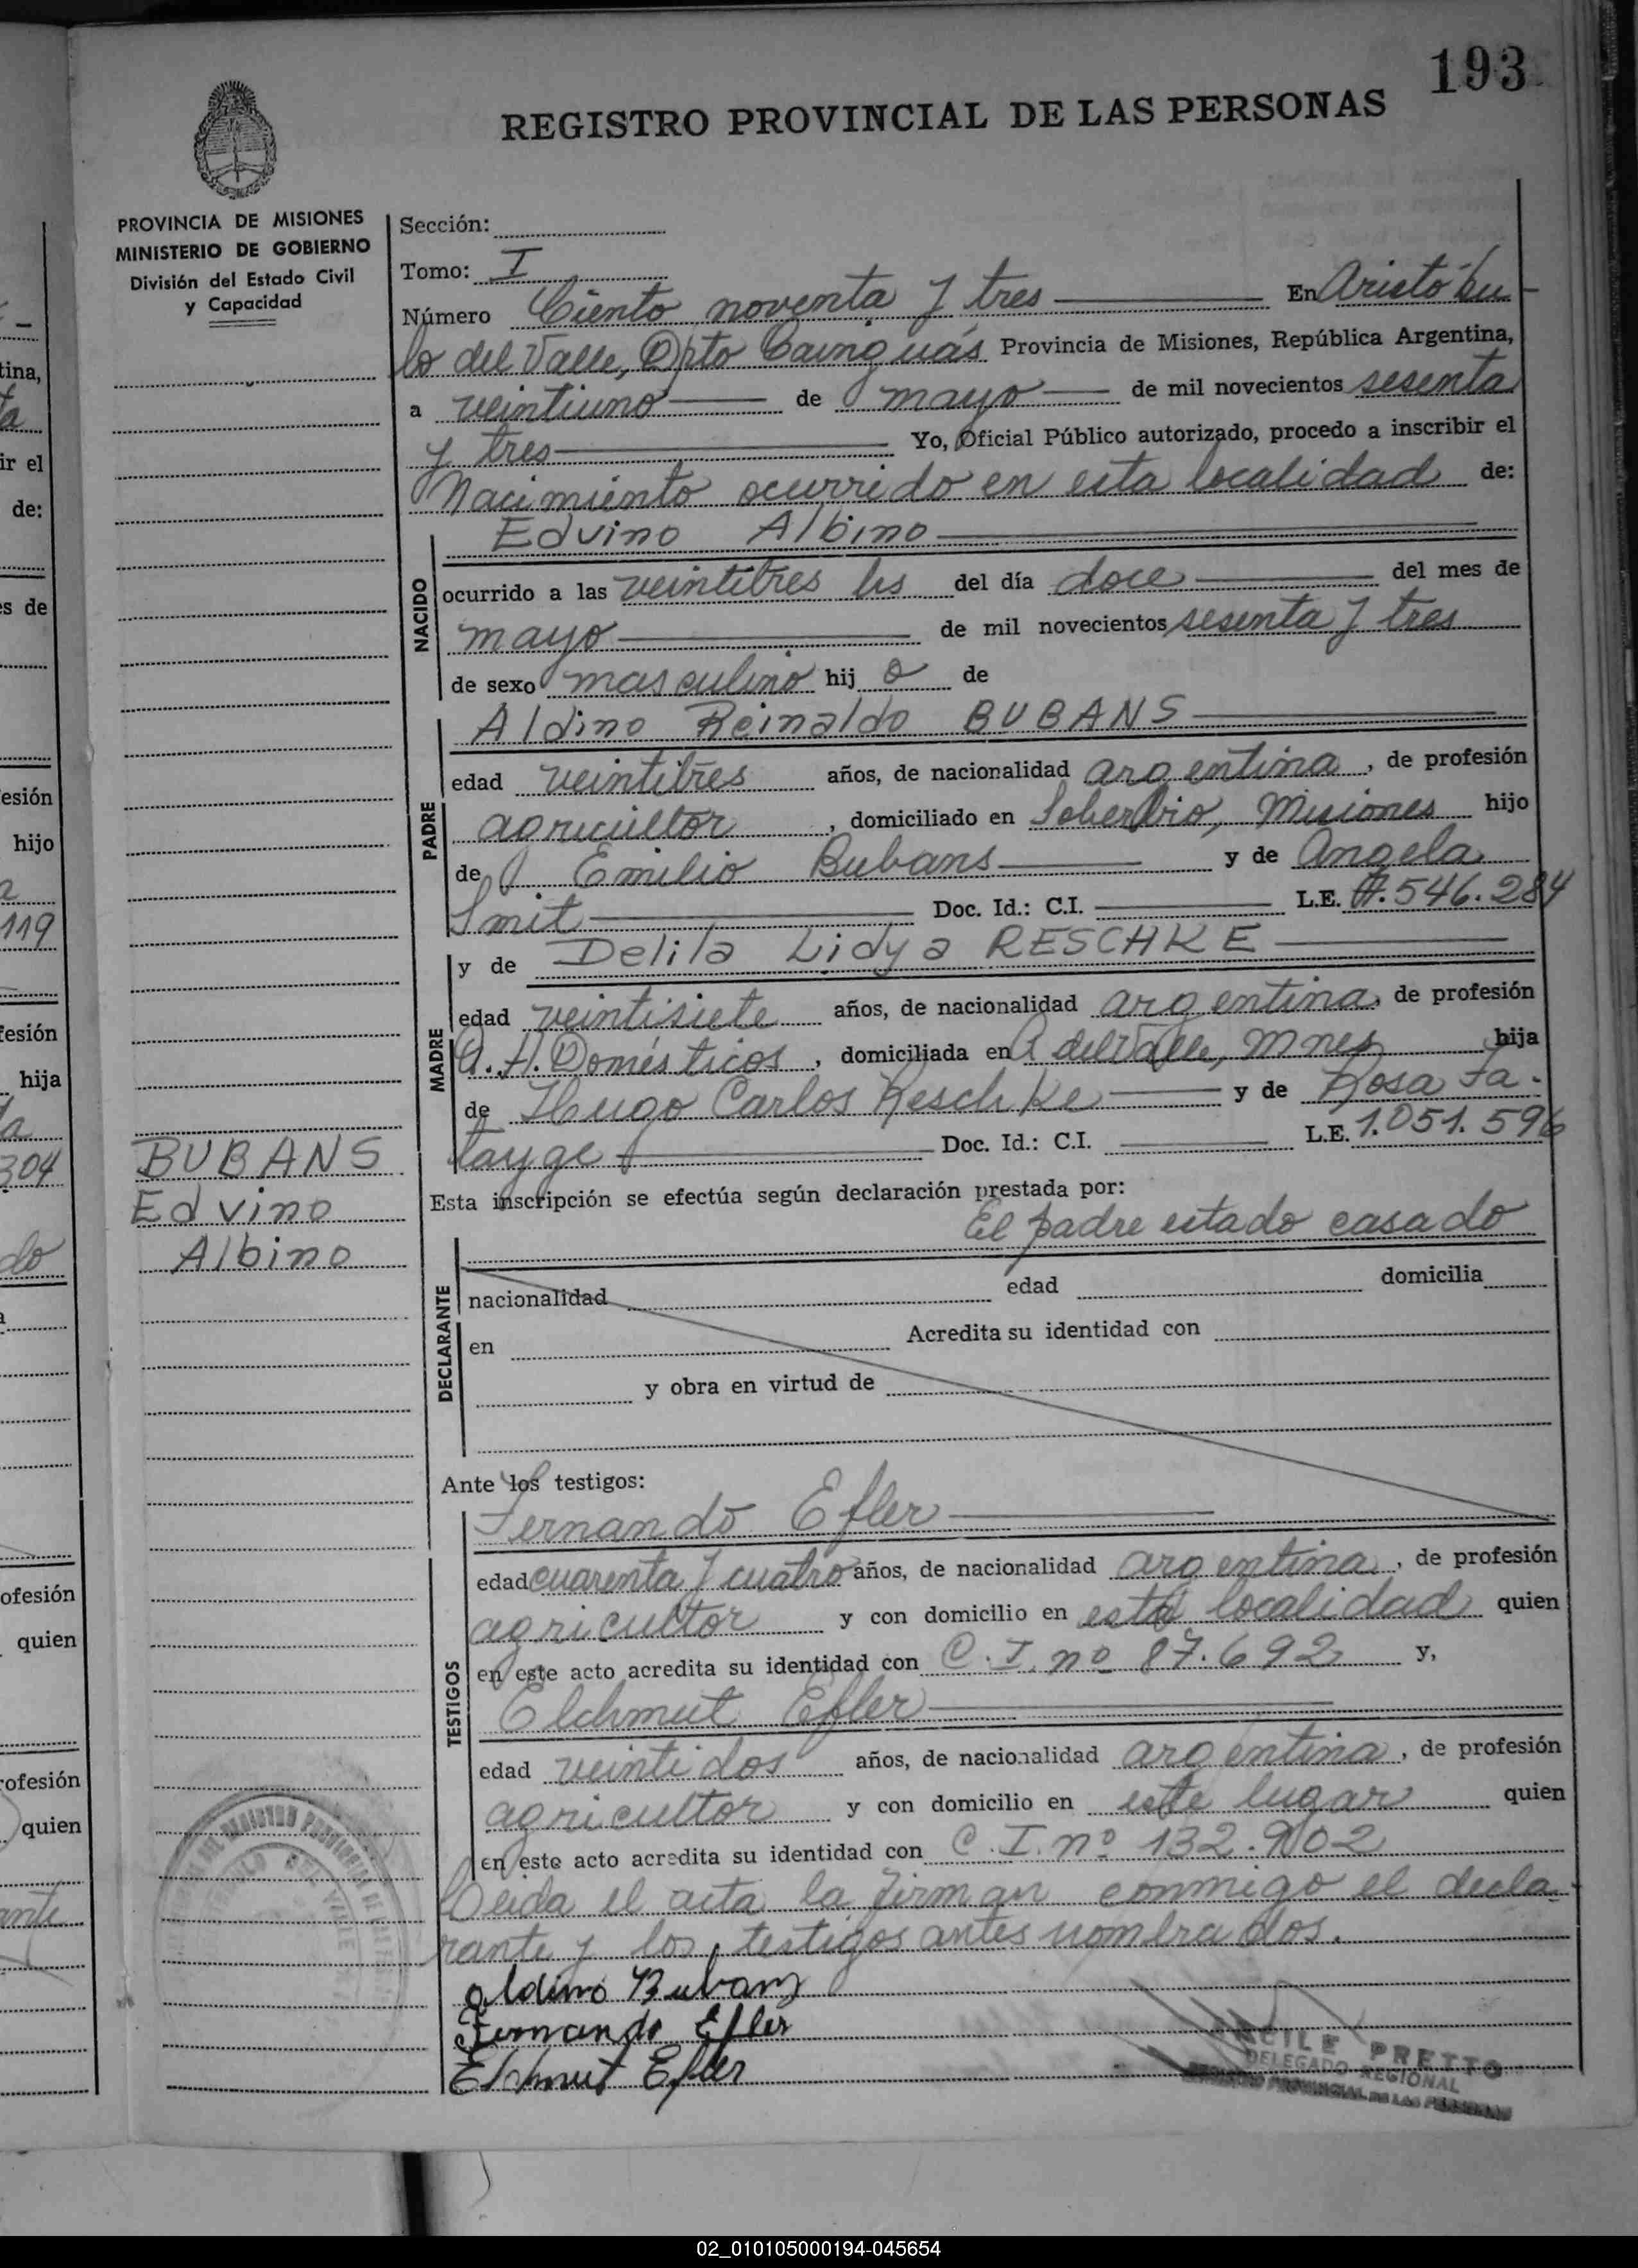 193
REGISTRO PROVINCIAL DE LAS PERSONAS
PROVINCIA DE MISIONES
MINISTERIO DE GOBIERNO
División del Estado Civil
y Capacidad
Sección:
Tomo: I
Número Ciento noventa y tres En Aristóbu-
lo del Valle, Dpto Cainguás Provincia de Misiones, República Argentina,
a veintiuno de mayo de mil novecientos sesenta
y tres Yo, Oficial Público autorizado, procedo a inscribir el
Nacimiento ocurrido en esta localidad de:
NACIDO
Edvino Albino
ocurrido a las veintitres hs del día doce del mes de
mayo de mil novecientos sesenta y tres
de sexo masculino hij o de
PADRE
Aldino Reinaldo BUBANS
edad veintitres años, de nacionalidad argentina, de profesión
agricultor, domiciliado en Soberbio, Misiones hijo
de Emilio Bubans y de Angela
Smit Doc. Id.: C.I. L.E. 7.546.284
MADRE
y de Delila Lidya RESCHKE
edad veintisiete años, de nacionalidad argentina, de profesión
Q. H. Domésticos, domiciliada en A del Valle, Mnes hija
de Hugo Carlos Reschke y de Rosa Fa-
tayge Doc. Id.: C.I. L.E. 1.051.596
BUBANS
Edvino
Albino
Esta inscripción se efectúa según declaración prestada por:
El padre estado casado
DECLARANTE
nacionalidad edad domicilia
en Acredita su identidad con
y obra en virtud de
Ante los testigos:
TESTIGOS
Fernando Efler
edad cuarenta y cuatro años, de nacionalidad argentina, de profesión
agricultor y con domicilio en esta localidad quien
en este acto acredita su identidad con C.I. nº 87.692 y,
Elchmut Efler
edad veintidos años, de nacionalidad argentina, de profesión
agricultor y con domicilio en este lugar quien
en este acto acredita su identidad con C.I. nº 132.902
Leida el acta la firman conmigo el decla-
rante y los testigos antes nombrados.
Aldino Bubans
Fernando Efler
Elchmut Efler
PRETTO
DELEGADO REGIONAL
REGISTRO PROVINCIAL DE LAS PERSONAS
02_010105000194-045654